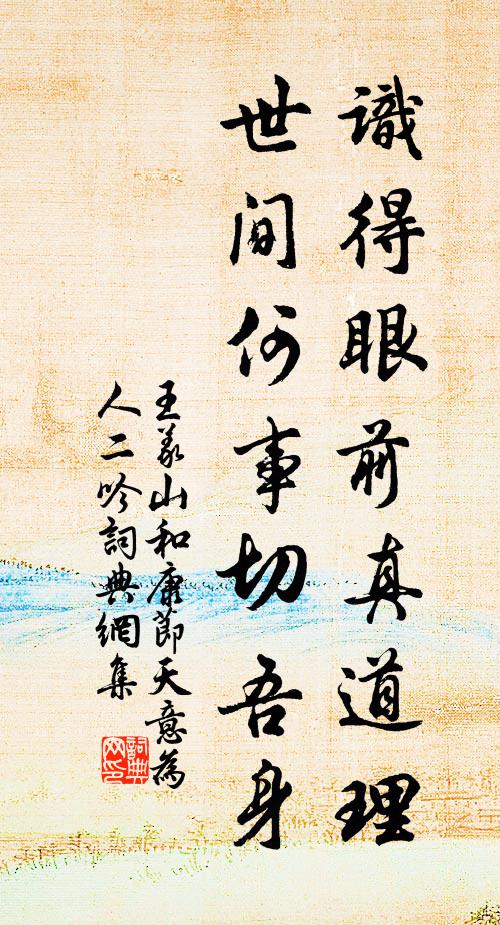 識得眼前真道理
世間何事切吾身
王義山和康節天意為
人二吟詞典網集
詞典
网印